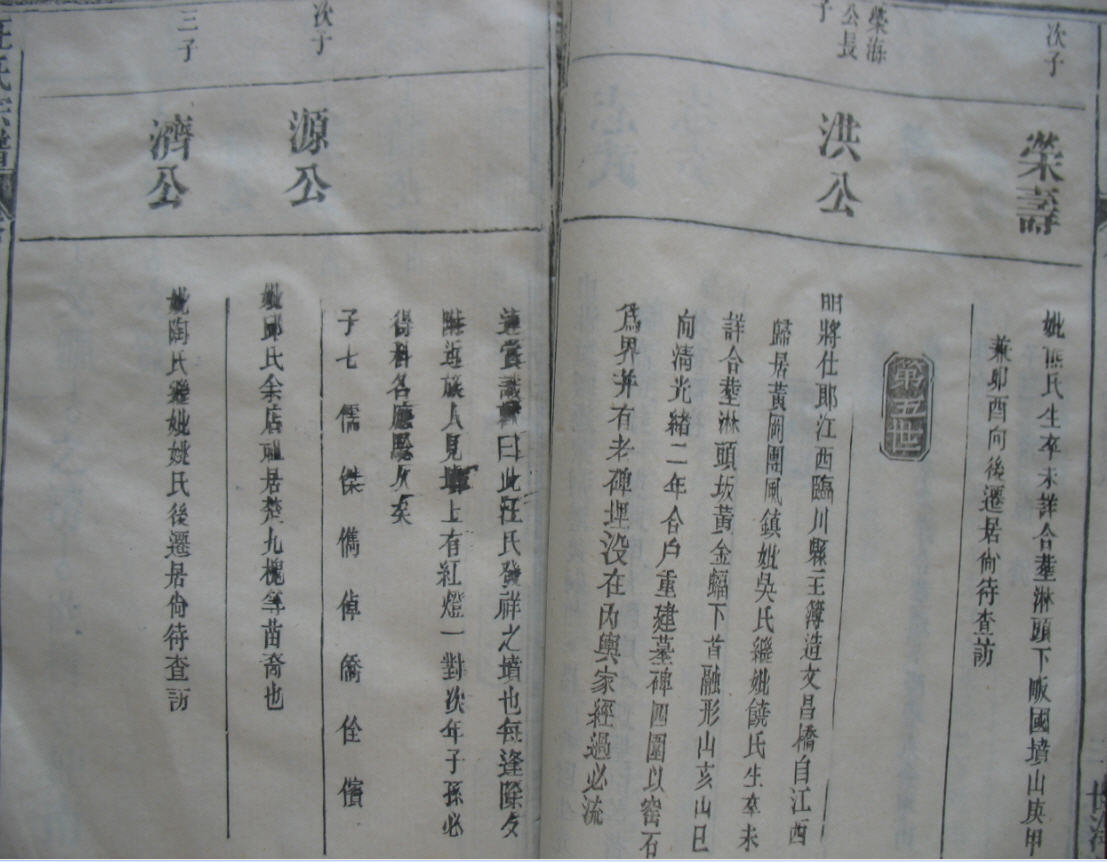 次子
榮壽
妣熊氏生卒未詳合塟淋頭下畈國墳山庚甲
兼卯酉向後遷居尙待查訪
第五世
榮海
公長
子
洪公
明將仕郎江西臨川縣主簿造文昌橋自江西
歸居黃岡團風鎮妣吳氏繼妣饒氏生卒未
詳合塟淋頭坂黃金蝠下首融形山亥山巳
向清光緒二年合戶重建墓碑四圍以窑石
爲界并有老碑埋没在內輿家經過必流
連嘗識曰此汪氏發祥之墳也每逢除夕
附近族人見上有紅燈一對次年子孫必
得科名應驗久矣
子七 儒 傑 儁 倬 僑 佺 儐
次子
源公
妣邱氏余店祖居楚九槐等苗裔也
三子
濟公
妣陶氏繼妣姚氏後遷居尙待查訪
汪氏宗譜